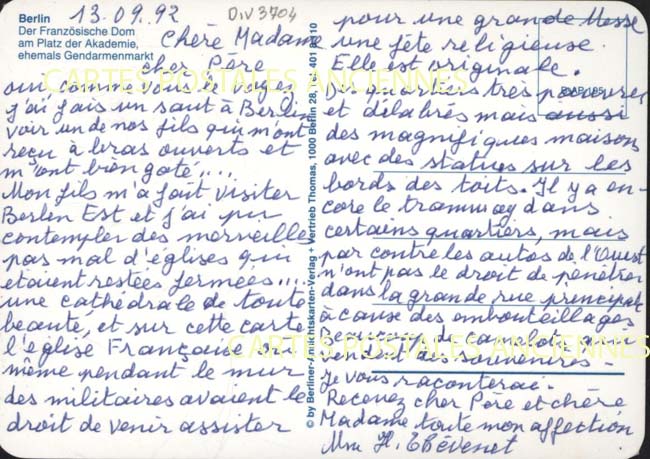 Berlin
Der Französische Dom
am Platz der Akademie,
ehemals Gendarmenmarkt
13.09.92
DIV3704
Chère Madame
cher Père
oui comme vous le voyez
j'ai fais un saut à Berlin
voir un de nos fils qui m'ont
reçu à bras ouverts et
m'ont bien gaté.....
Mon fils m'a fait visiter
Berlin Est et j'ai pu
contempler des merveilles
pas mal d'églises qui
étaient restées fermées....
une cathédrale de toute
beauté, et sur cette carte
l'église Française où
même pendant le mur
des militaires avaient le
droit de venir assister
© by Berliner-Ansichtskarten-Verlag + Vertrieb Thomas, 1000 Berlin 28, 401 10
pour une grande Messe
une fête religieuse.
Elle est originale.
Des quartiers très pauvres
et délabrés mais aussi
des magnifiques maisons
avec des statues sur les
bords des toits. Il y a en-
core le tramway dans
certains quartiers, mais
par contre les autos de l'Ouest
n'ont pas le droit de pénétrer
dans la grande rue principale
à cause des embouteillages
Beaucoup de camelots
vendent des souvenirs -
Je vous raconterai.
Recevez cher Père et chère
Madame toute mon affection
Mme H. Thévenet
CARTES POSTALES ANCIENNES
CARTES POSTALES ANCIENNES